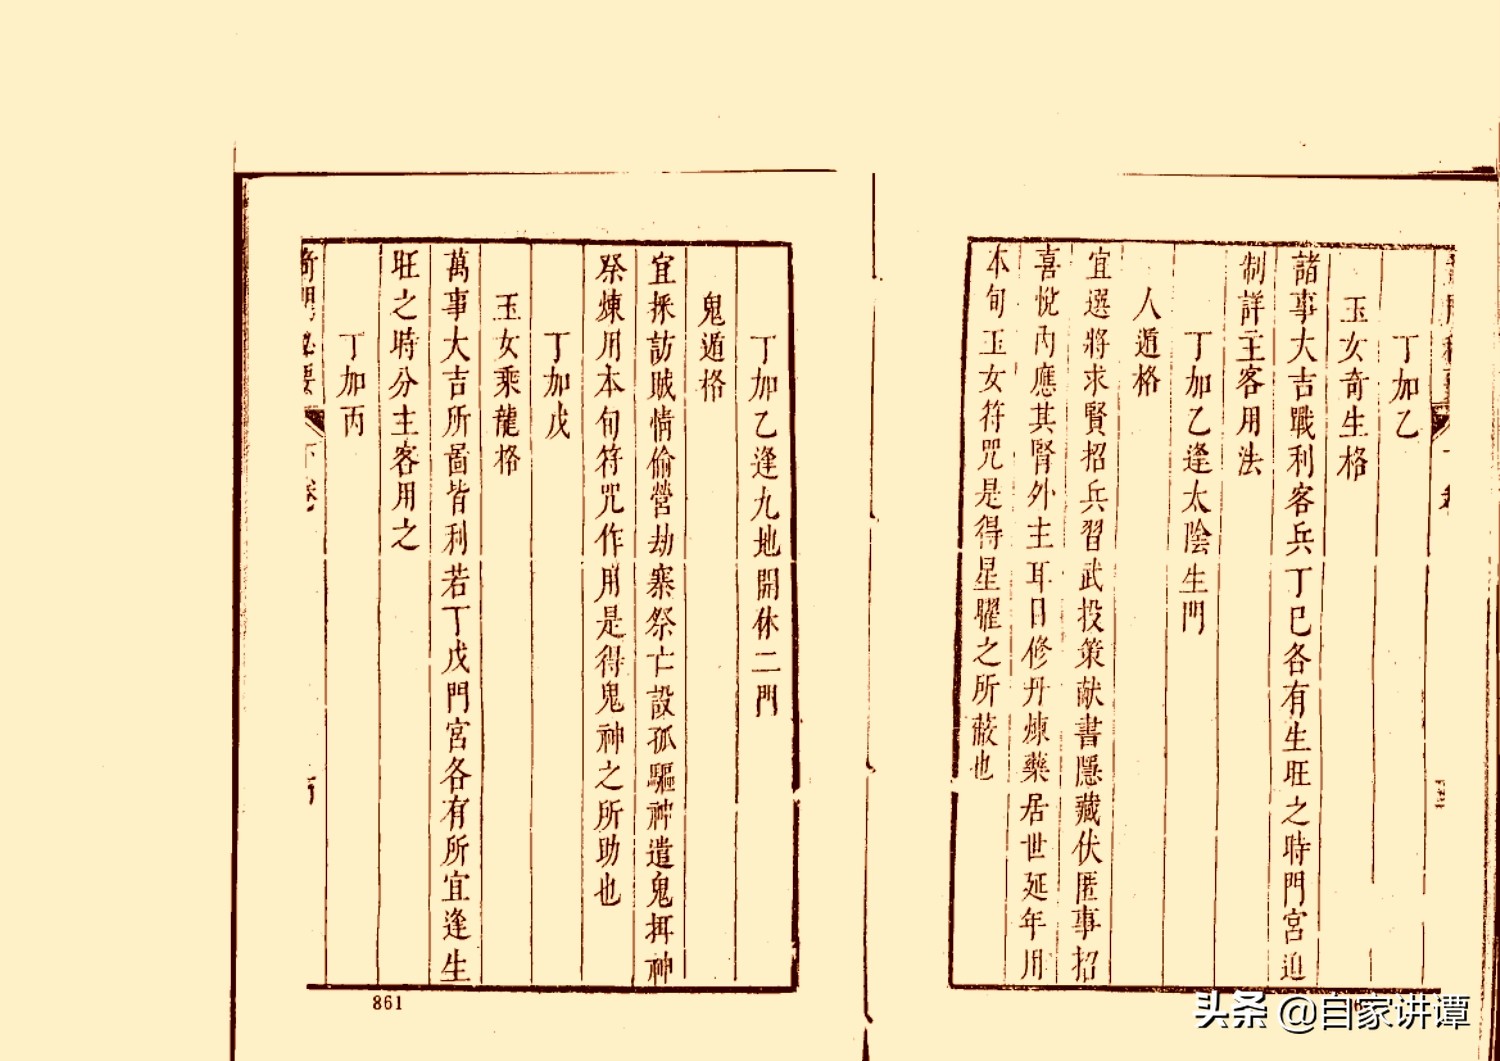 丁加乙
玉女奇生格
諸事大吉戰利客兵丁巳各有生旺之時門宮迫
制詳主客用法
丁加乙逢太陰生門
人遁格
宜選將求賢招兵習武投策献書隱藏伏匿事招
喜悅內應其腎外主耳目修丹煉藥居世延年用
本旬玉女符咒是得星曜之所蔽也
丁加乙逢九地開休二門
鬼遁格
宜採訪賊情偷營劫寨祭亡設孤驅神遣鬼拜神
祭煉用本旬符咒作用是得鬼神之所助也
丁加戊
玉女乘龍格
萬事大吉所啚皆利若丁戊門宮各有所宜逢生
旺之時分主客用之
丁加丙
奇門秘要
下卷
861
头条 @自家讲谭